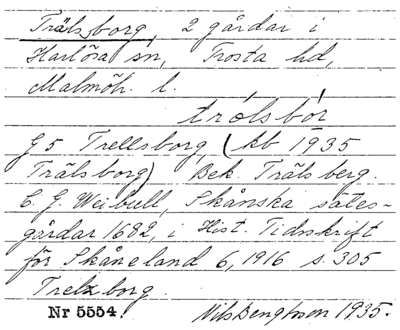 Trälsborg, 2 gårdar i
Harlösa sn, Frosta hd,
Malmöh. l.
trólsbór
G 5 Trellsborg (kb 1935
Trälsborg) Bek. Trälsberg.
C. G. Weibull, Skånska sätes-
gårdar 1682, i Hist. Tidsskrift
för Skåneland 6, 1916 s. 305
Trelzborg.
Nr 5554. Nils Bengtsson 1935.